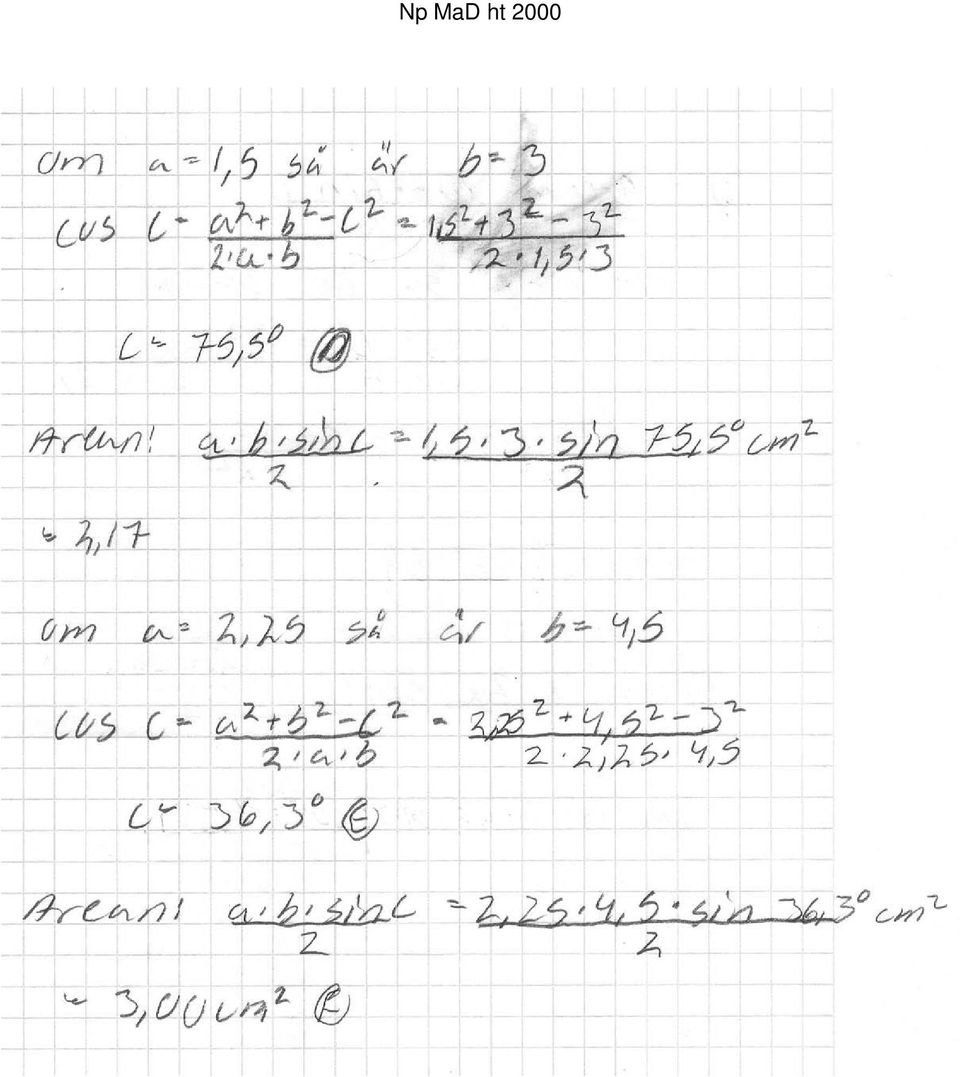 Np MaD ht 2000
om a = 1,5 så är b = 3
cos C = a²+b²-c² / 2·a·b = 1,5²+3²-3² / 2·1,5·3
C ≈ 75,5° D
Arean: a·b·sin C / 2 = 1,5·3·sin 75,5° / 2 cm²
≈ 2,17
om a = 2,25 så är b = 4,5
cos C = a²+b²-c² / 2·a·b = 2,25²+4,5²-3² / 2·2,25·4,5
C ≈ 36,3° E
Arean: a·b·sin C / 2 = 2,25·4,5·sin 36,3° / 2 cm²
≈ 3,00 cm²